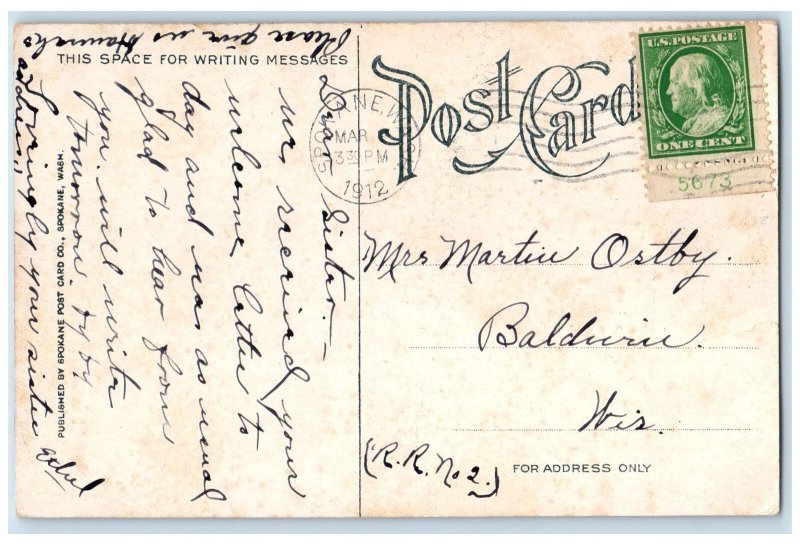 Please give us Hannah's
address,,
THIS SPACE FOR WRITING MESSAGES
Dear Sister—
We, received your
welcome letter to
day and was as usual
glad to hear from
you. will write
tomorrow. by by
Lovingly your sister Ethel
PUBLISHED BY SPOKANE POST CARD CO., SPOKANE, WASH.
Post Card
SPOKANE, WASH.
MAR
330 PM
1912
U.S. POSTAGE
ONE CENT
5673
Mrs Martin Ostby.
Baldwin.
Wis.
(R.R. No 2.)
FOR ADDRESS ONLY